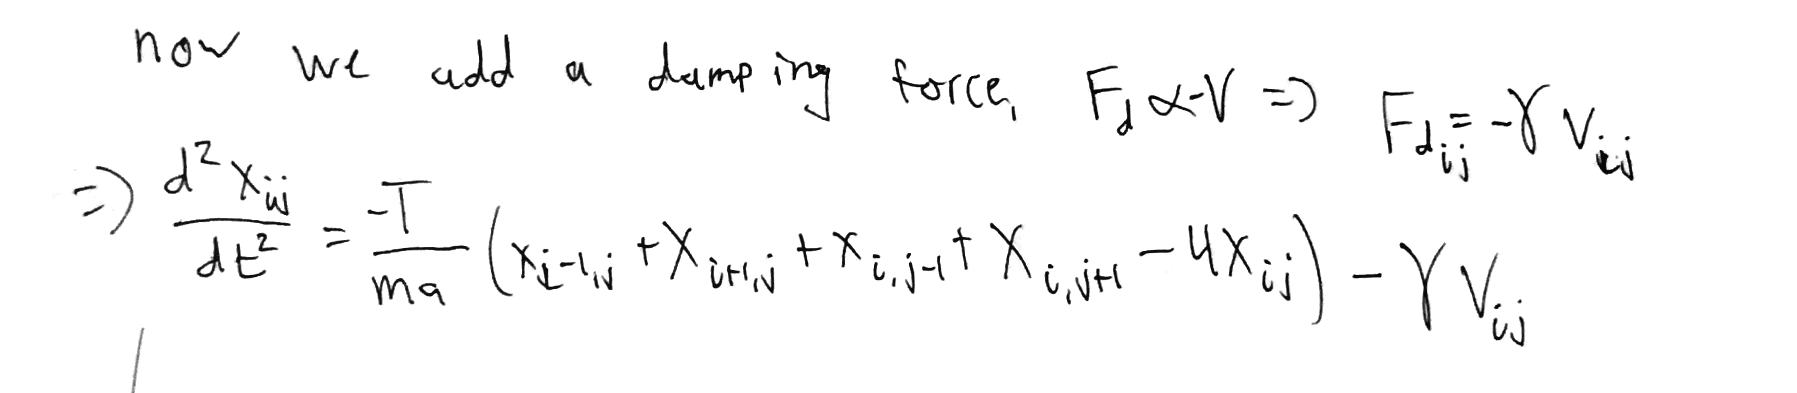 now we add a damping force, F_d ∝ -V => F_{d_{ij}} = -γ V_{ij}
=> \frac{d^2 x_{ij}}{dt^2} = \frac{-T}{ma} (x_{i-1,j} + x_{i+1,j} + x_{i,j-1} + x_{i,j+1} - 4x_{ij}) - γ V_{ij}